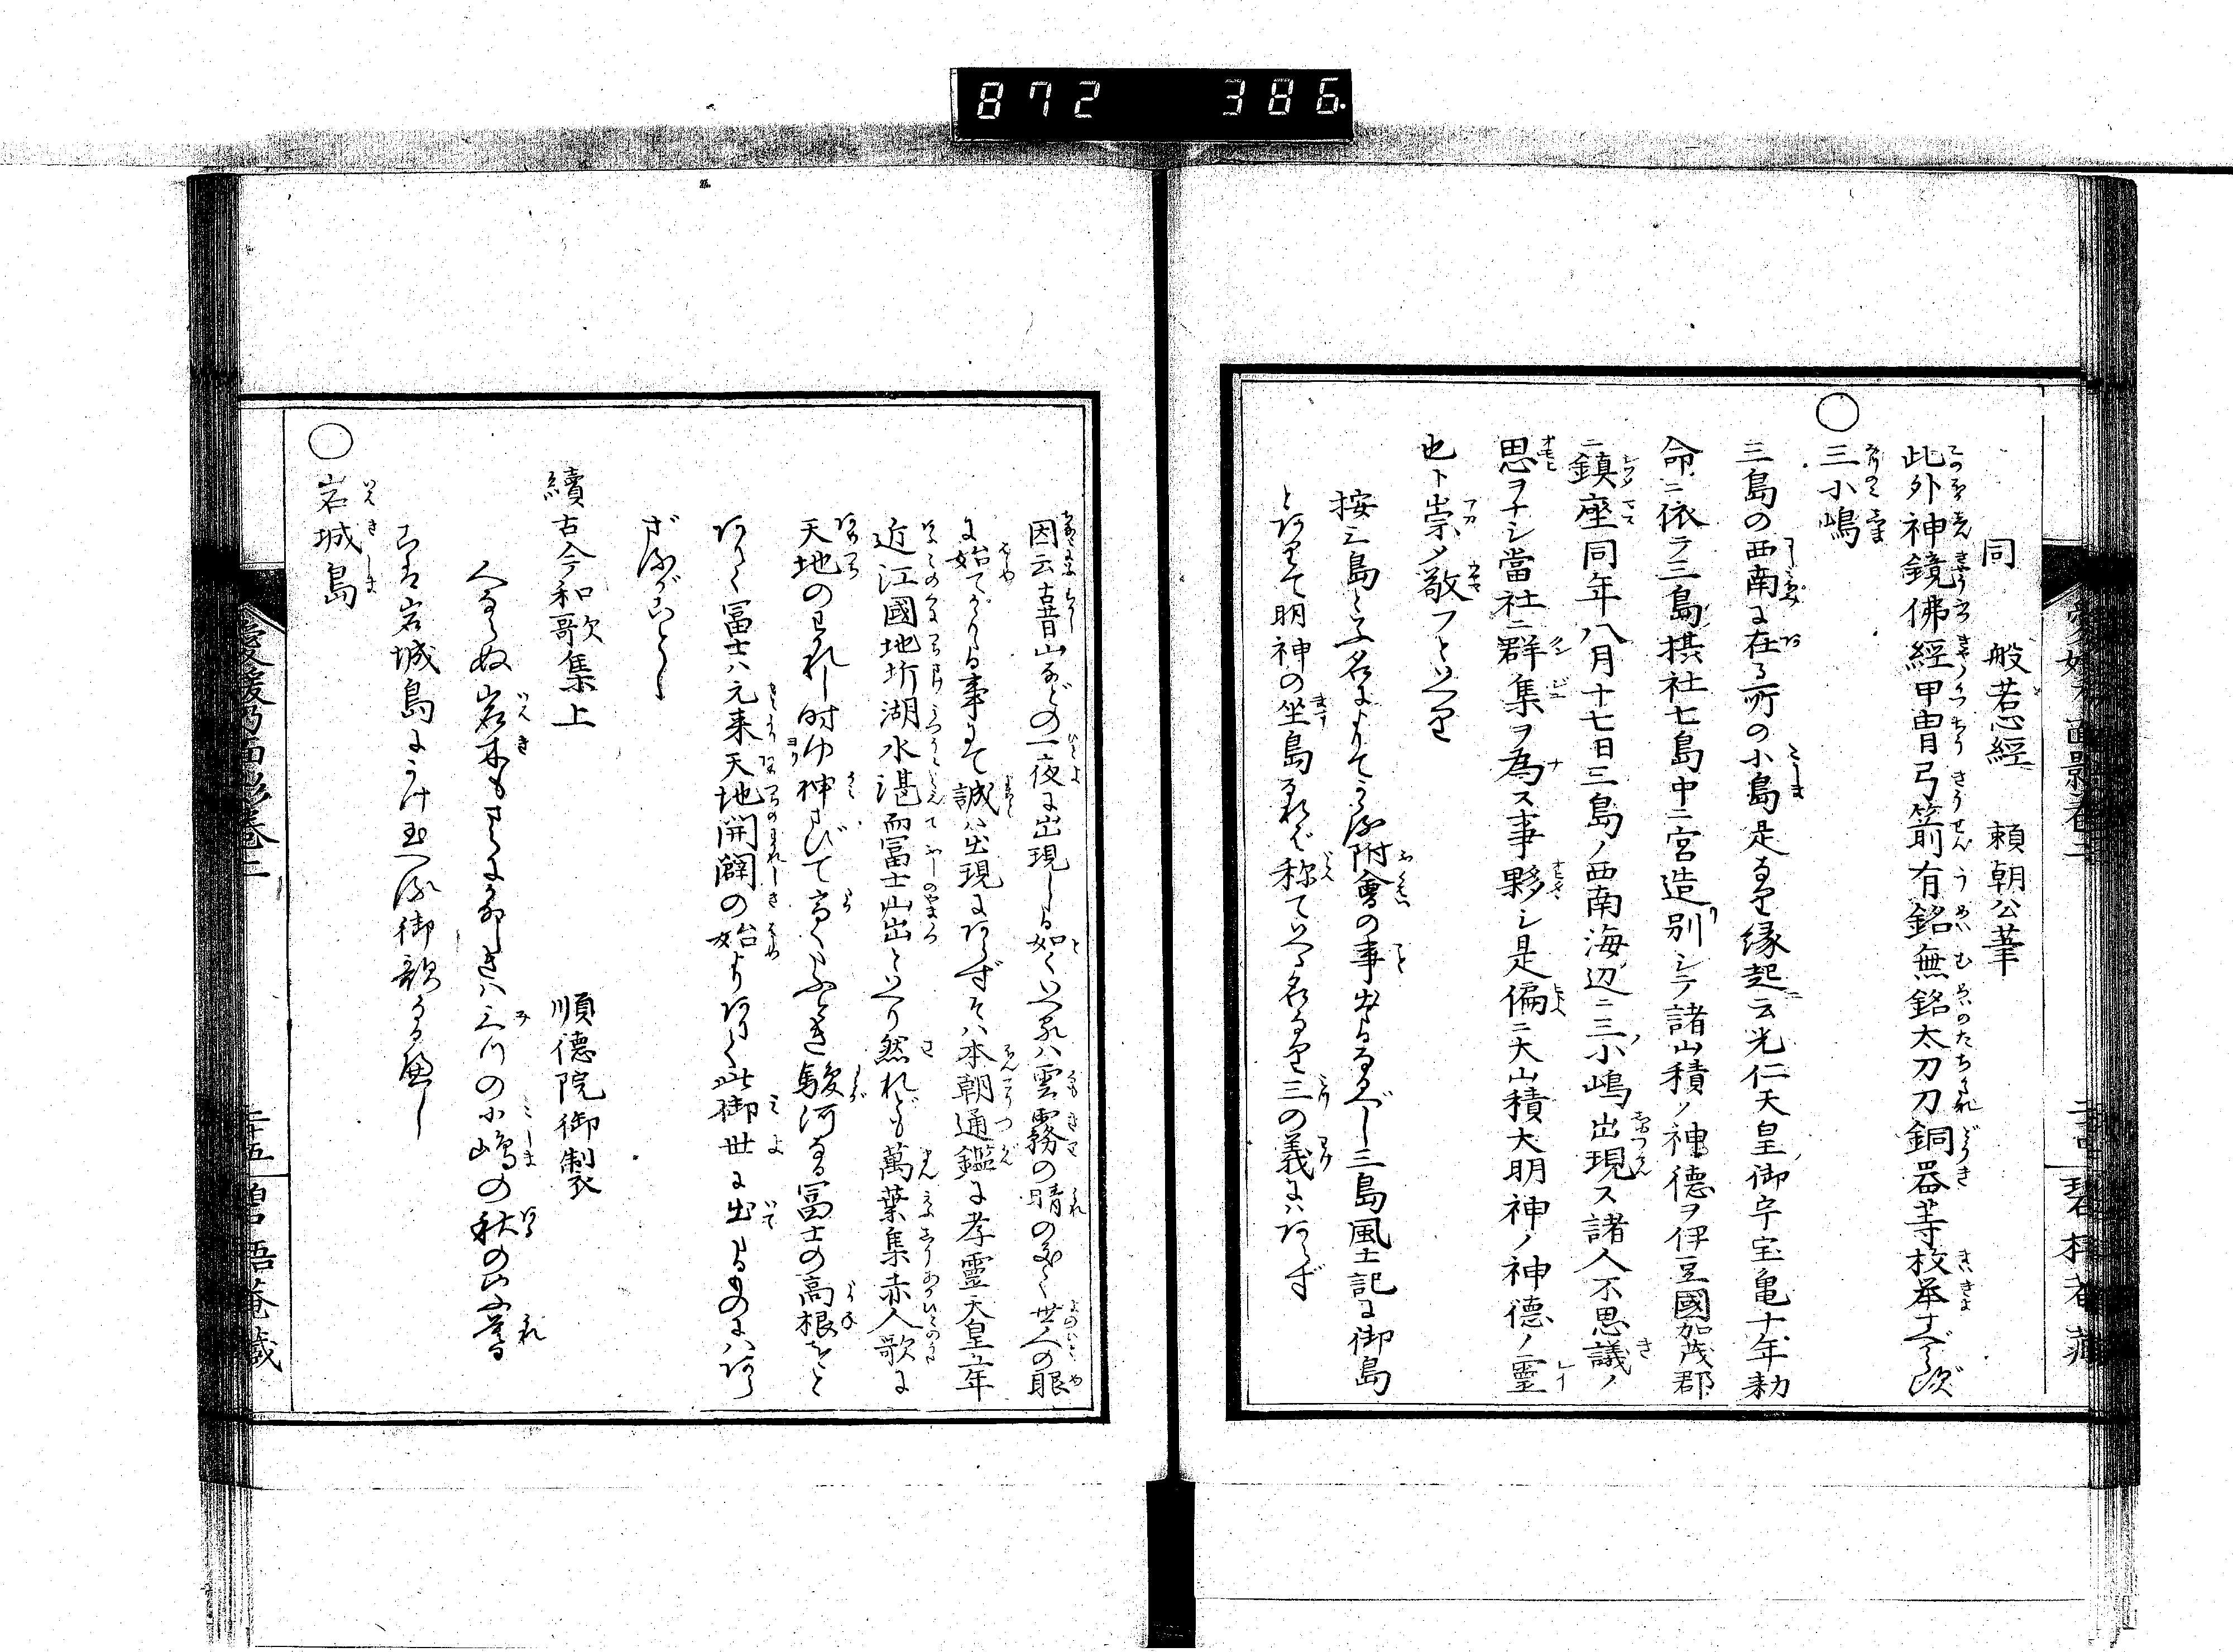 872 386.
同 般若心經 賴朝公筆
此外神鏡佛經甲冑弓箭有銘無銘太刀刀銅器等枚挙すべからず
三小嶋
三島の西南に在る所の小島是なり縁起ニ云光仁天皇御宇宝亀十年勅
命ニ依テ三島摂社七島中ニ宮造別シテ諸山積ノ神德ヲ伊豆國加茂郡
ニ鎮座同年八月十七日三島ノ西南海辺ニ三小嶋出現ス諸人不思議ノ
思ヲナシ當社ニ群集ヲ為ス事夥シ是偏ニ大山積大明神ノ神德ノ霊
也ト崇メ敬フといへり
按ニ三島といふ名によりてかゝる附會の事出たるなるべし三島風土記に御島
とありて明神の坐島なれバ称ていへる名なり三の義にハあらず
因云古昔山などの一夜に出現したる如くいへるハ雲霧の晴の後世人の眼
に始てかゝる事にて誠ハ出現にあらずそハ本朝通鑑に孝霊天皇五年
近江國地坼湖水湛而冨士山出といへり然れども萬葉集赤人歌に
天地のわかれし時ゆ神さびて高くたふとき駿河なる冨士の高根をと
ありて冨士ハ元来天地開闢の始よりありて此御世に出たるものにハあら
ざるがごとし
續古今和歌集上 順德院御製
人ならぬ岩木もさらにかなしきハみつの小嶋の秋の山暮
こは岩城島にかけ玉へる御歌なる歟し
岩城島
愛媛乃面影巻二 二十五 碧梧菴藏